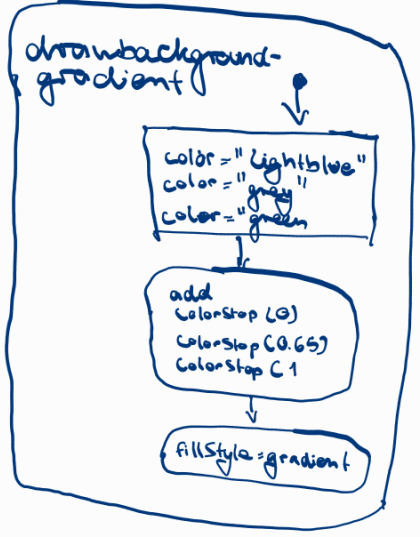 drawbackground-
gradient
color = "Lightblue"
color = "grey"
color = "green
add
ColorStop (0)
ColorStop (0.65)
ColorStop ( 1
fillStyle = gradient